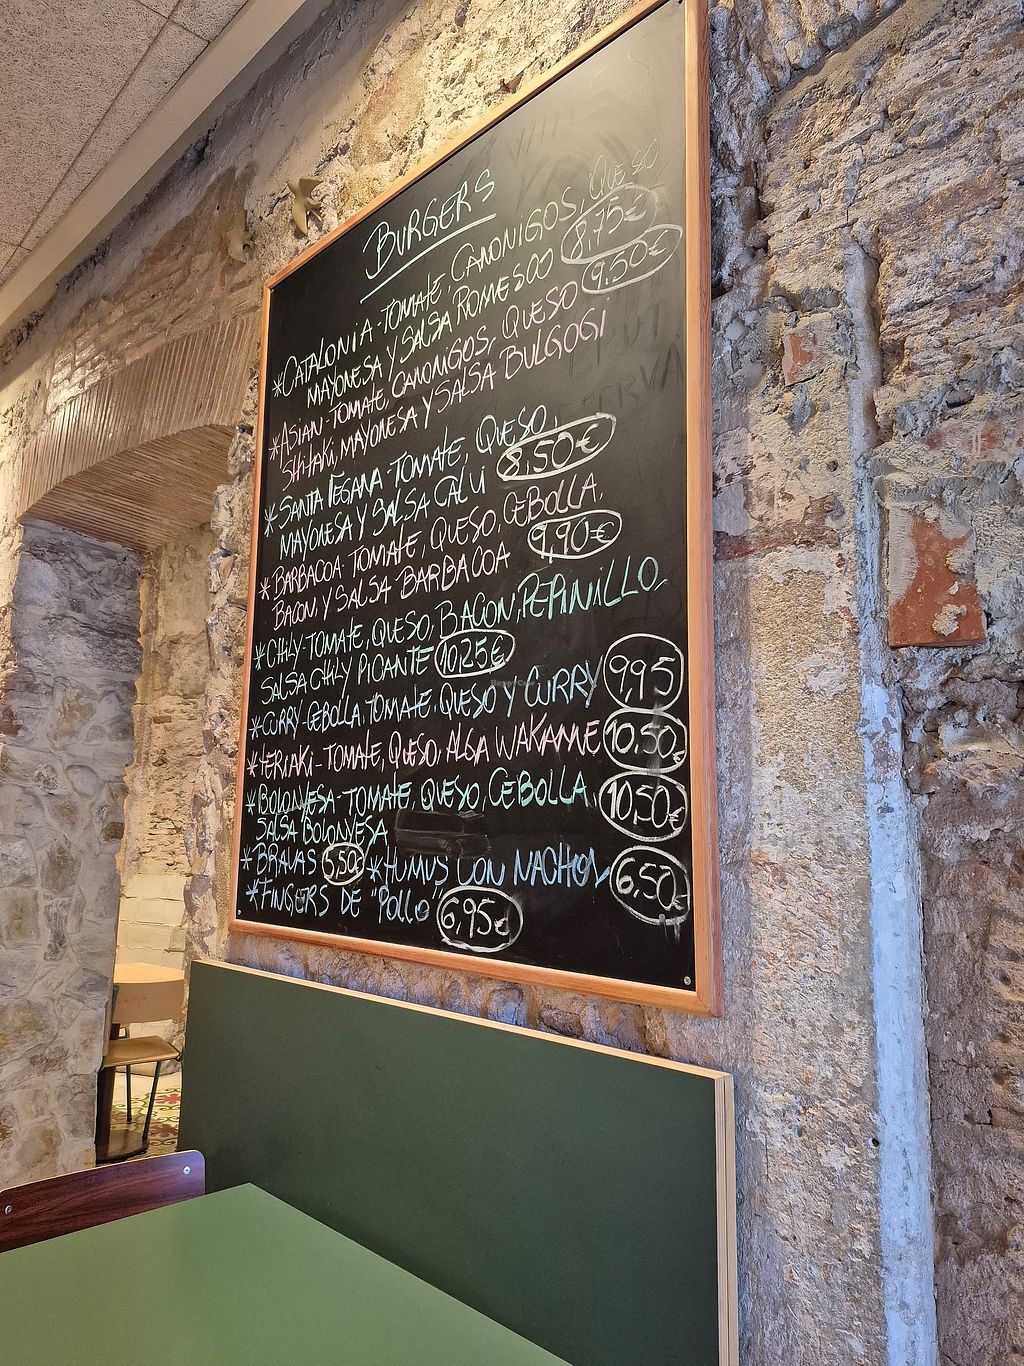 BURGERS
*CATALONIA-TOMATE, CANONIGOS, QUESO
MAYONESA Y SALSA ROMESCO 8,75€
*ASIAN-TOMATE, CANONIGOS, QUESO 9.50€
SHITAKI, MAYONESA Y SALSA BULGOGI
*SANTA VEGANA-TOMATE, QUESO,
MAYONESA Y SALSA CALÇU 8,50€
*BARBACOA-TOMATE, QUESO, CEBOLLA,
BACON, Y SALSA BARBACOA 9,90€
*CHILY-TOMATE, QUESO, BACON, PEPINILLO,
SALSA CHILY PICANTE 10,25€
*CURRY-CEBOLLA, TOMATE, QUESO Y CURRY 9,95
*TERIAKI-TOMATE, QUESO, ALGA WAKAME 10,50€
*BOLONYESA-TOMATE, QUESO, CEBOLLA, 10,50€
SALSA BOLONYESA
*BRAVAS 5,50€ *HUMUS CON NACHOS 6,50€
*FINGERS DE "POLLO" 6,95€